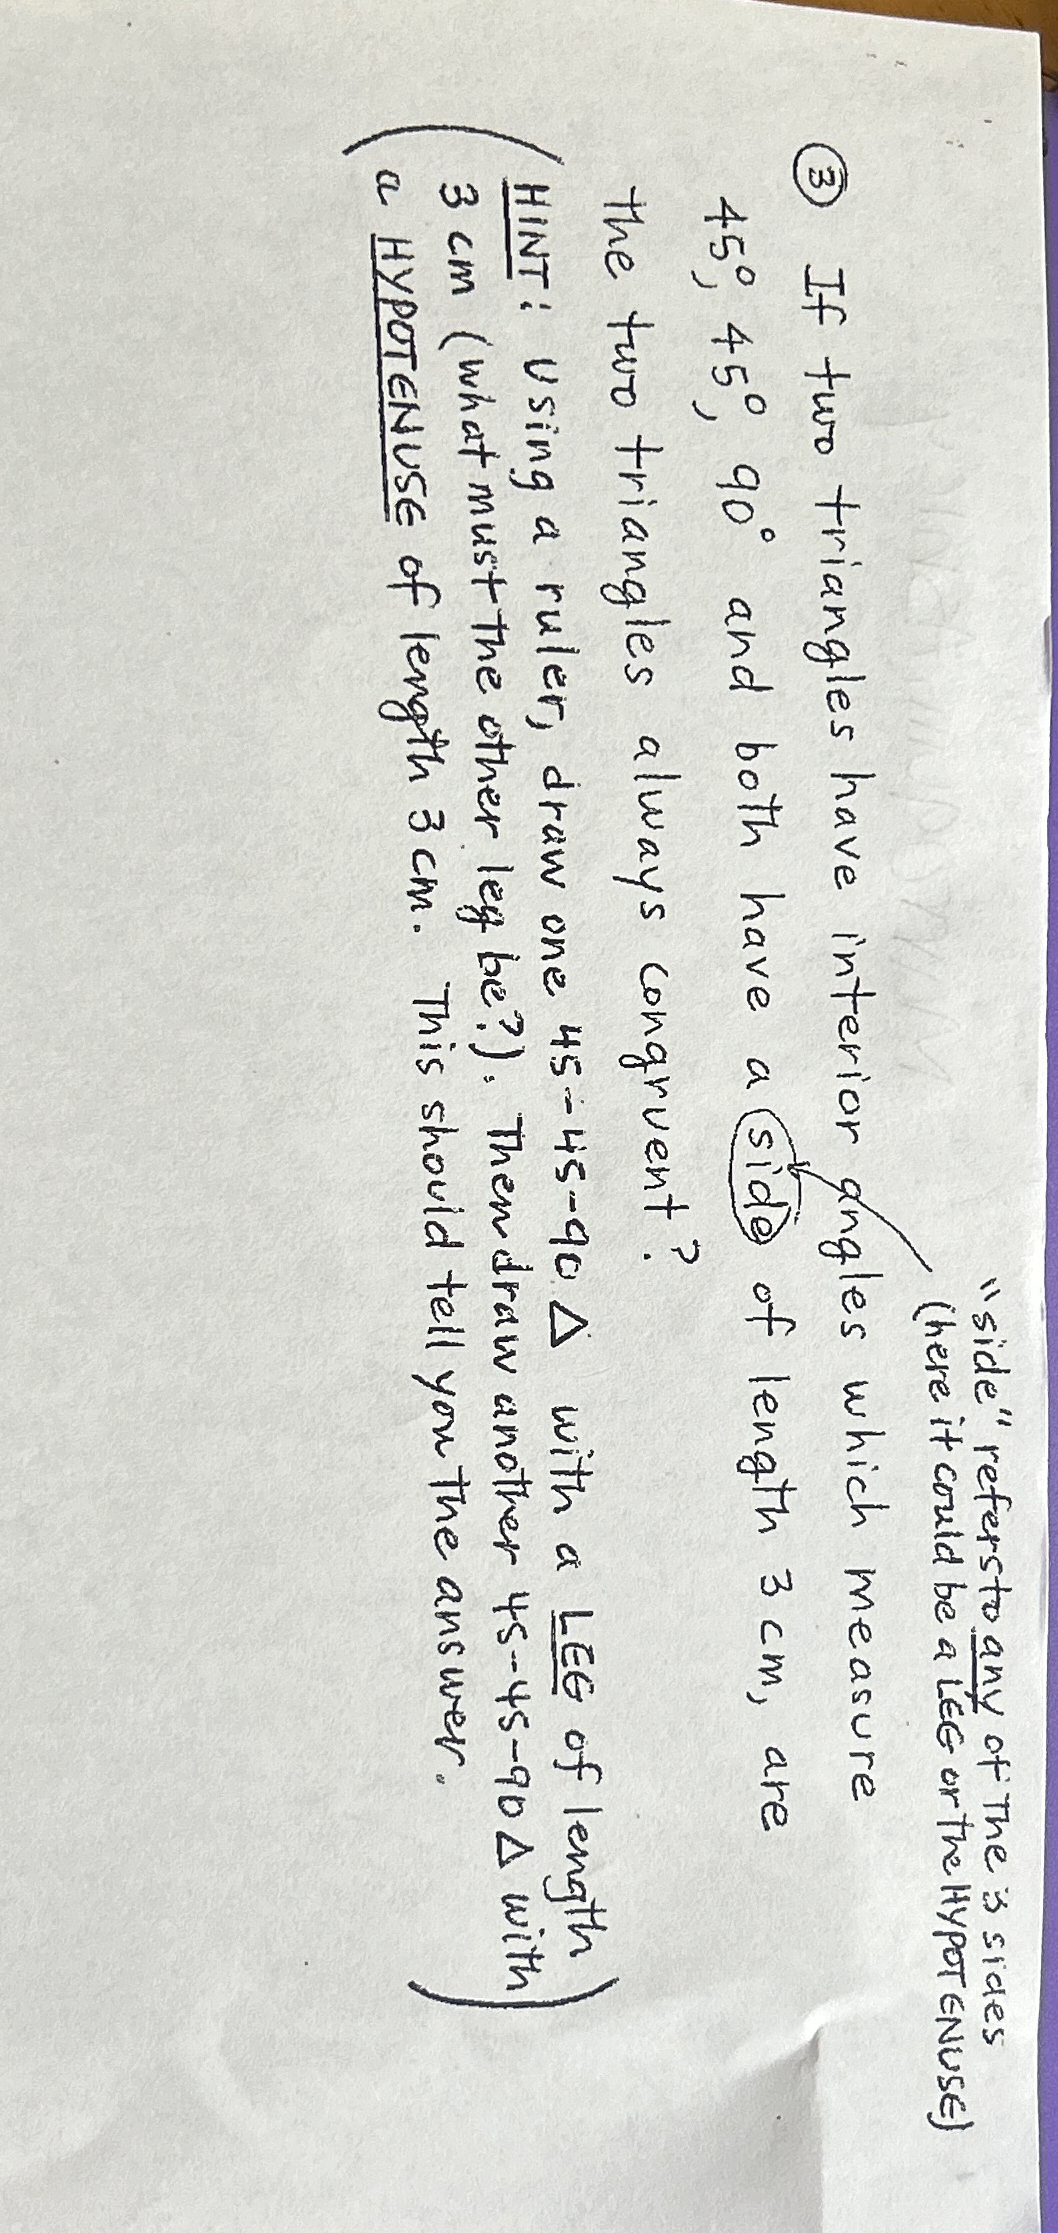 "side" refers to any of the 3 sides
(here it could be a LEG or the HYPOTENUSE)
③ If two triangles have interior angles which measure
45°, 45°, 90° and both have a side of length 3 cm, are
the two triangles always congruent?
(HINT: Using a ruler, draw one 45-45-90 △ with a LEG of length
3 cm (what must the other leg be?). Then draw another 45-45-90 △ with
a HYPOTENUSE of length 3 cm. This should tell you the answer.)